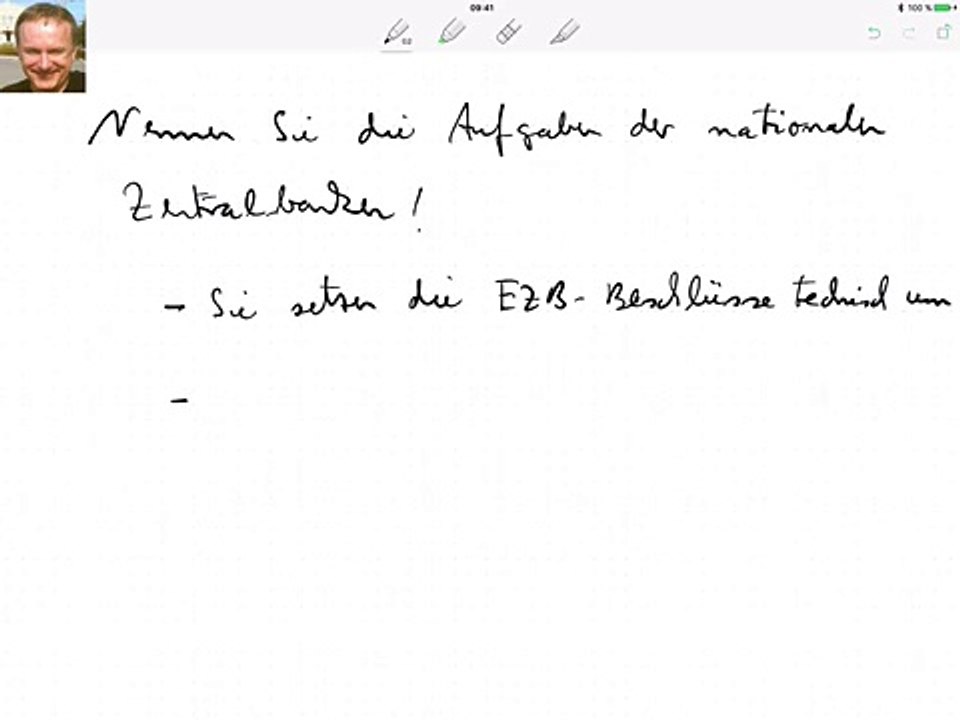 09:41
100 %
Nennen Sie die Aufgaben der nationalen
Zentralbanken!
- Sie setzen die EZB-Beschlüsse technisch um
-